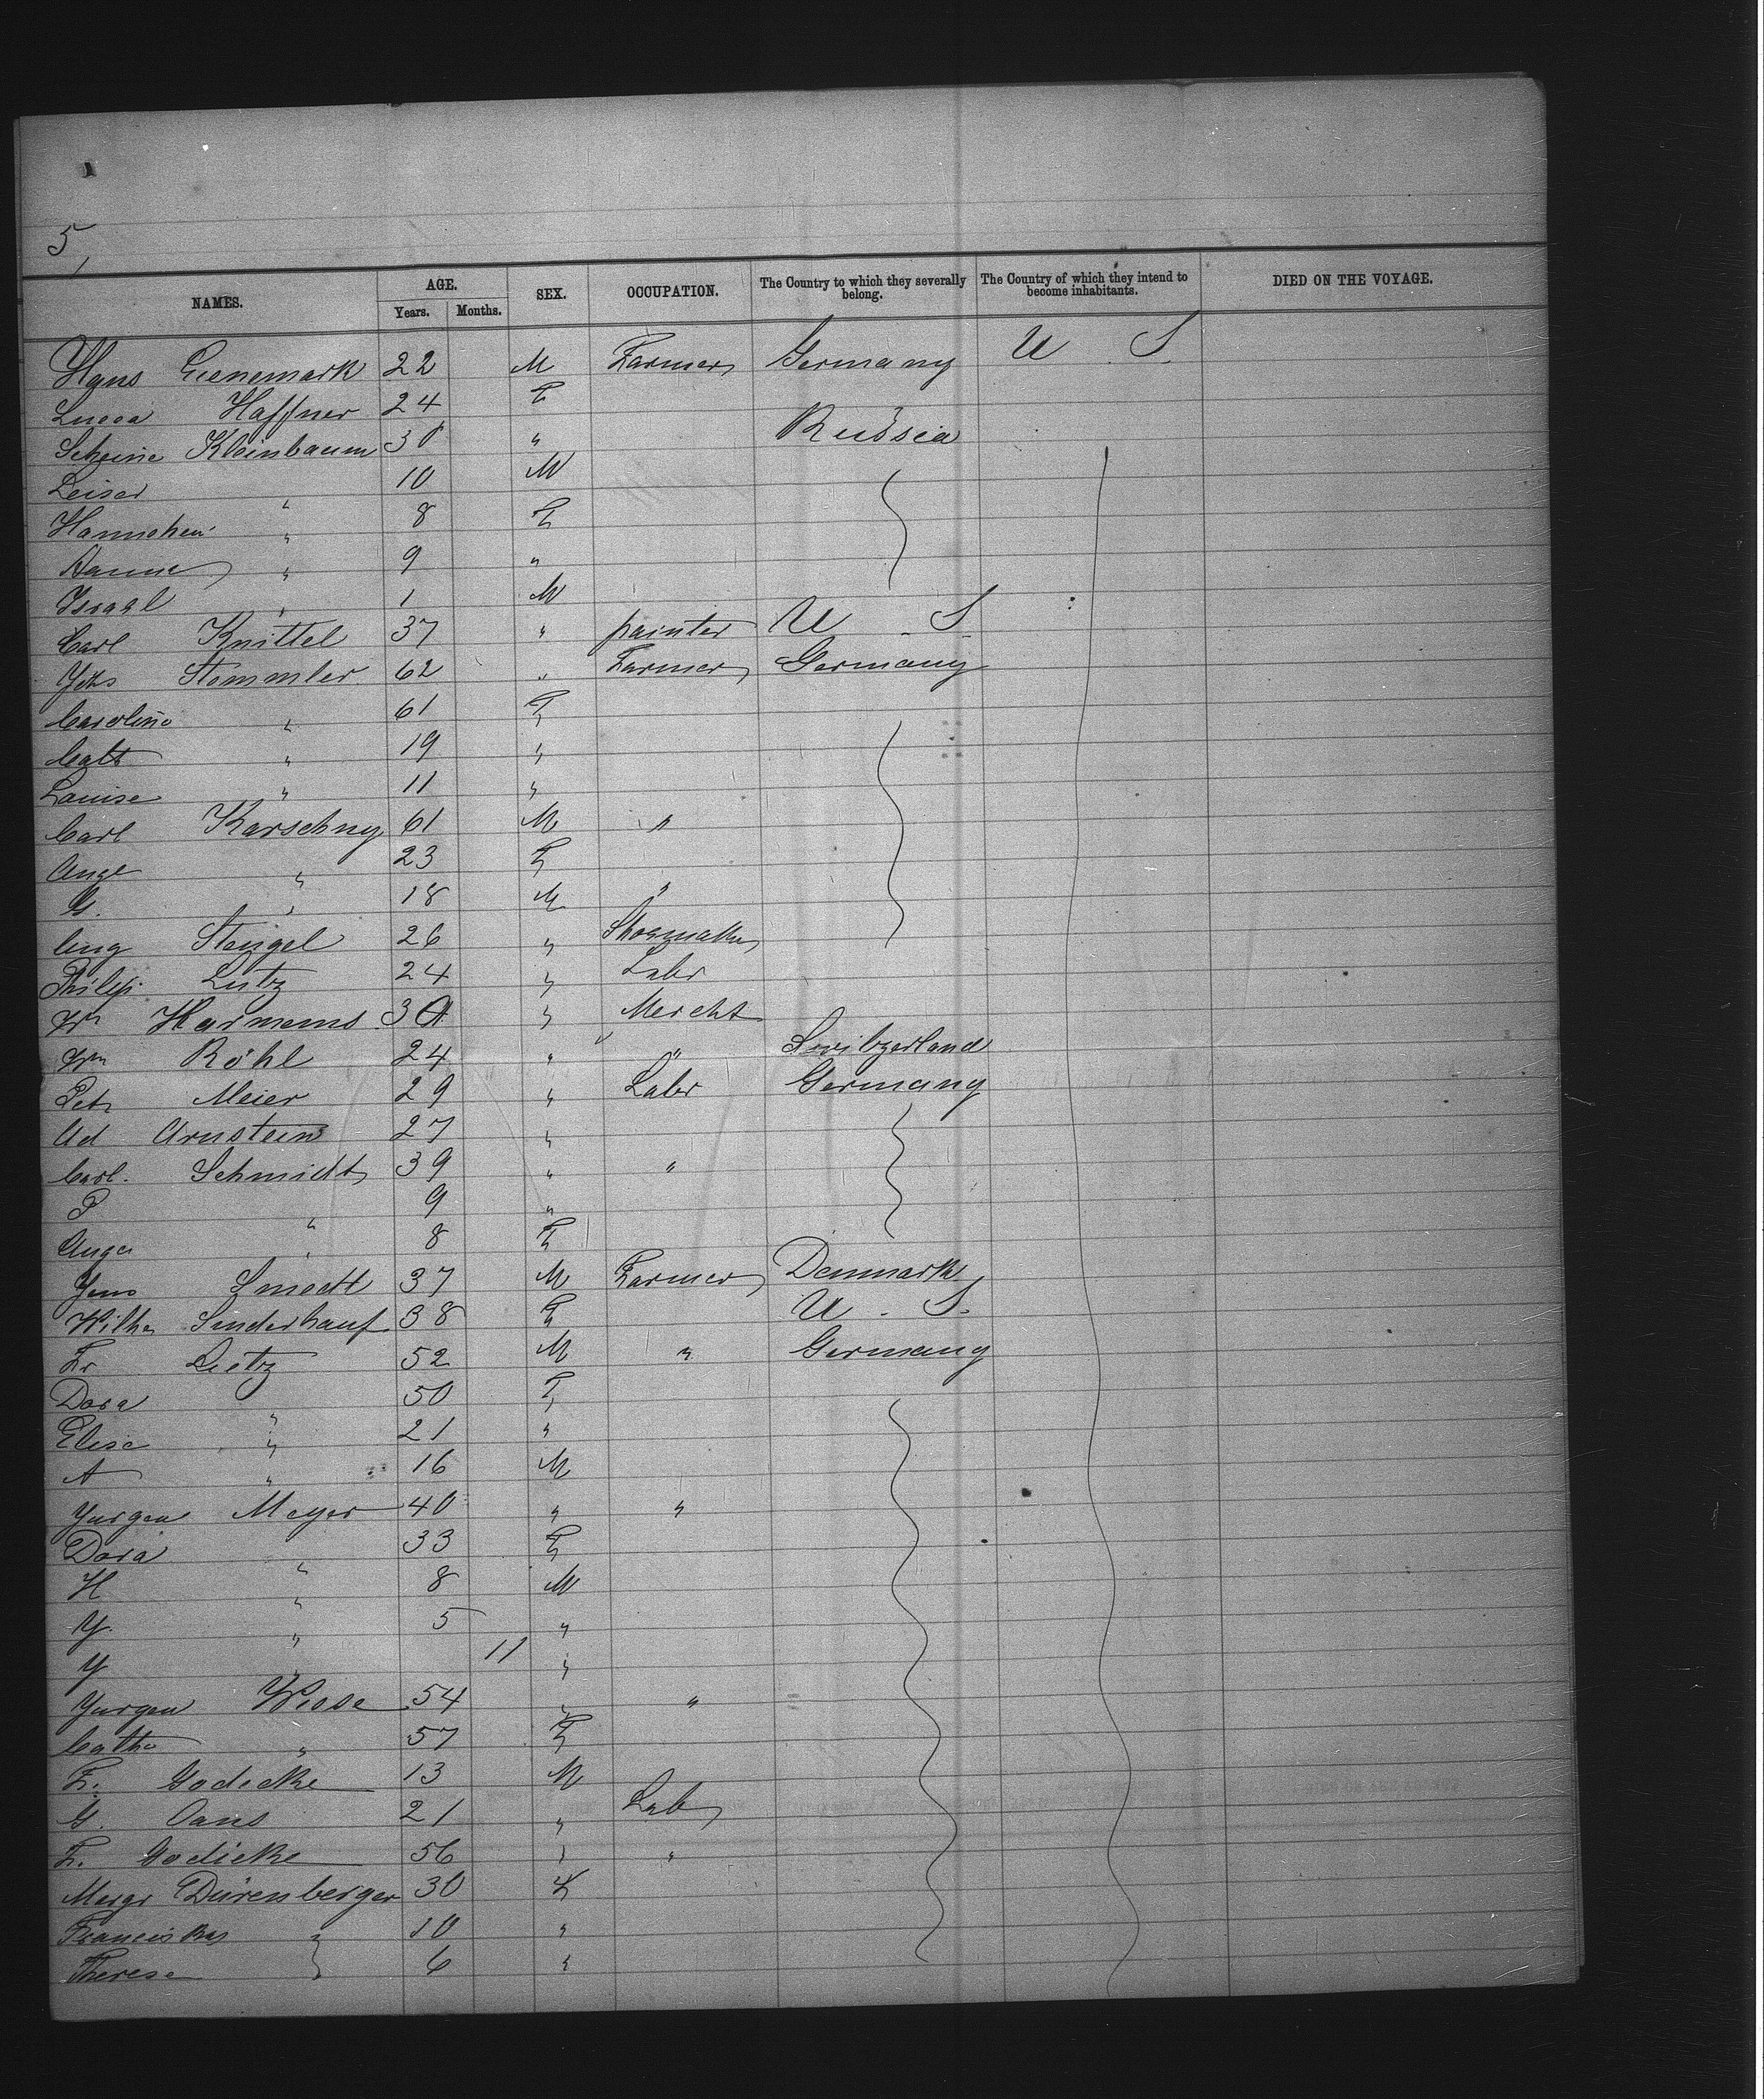 5
NAMES. AGE. Years. Months. SEX. OCCUPATION. The Country to which they severally belong. The Country of which they intend to become inhabitants. DIED ON THE VOYAGE.
Hans 22 M Farmer Germany U. S.
Haffner 24 F
Scheine Kleinbaum 30 " Russia
Leiser " 10 M
Hannchen " 8 F
Hanne " 9 "
Israel " 1 M
Carl Knittel 37 " painter U. S.
Stemmler 62 " Farmer Germany
Caroline " 61 F
Cath " 19 "
Louise " 11 "
Carl Karschny 61 M "
" 23 F
G. " 18 M "
Stengel 26 " Shoemaker
Philip Lutz 24 " Labr
Harmems " Mercht
Wm Röhl 24 " " Switzerland
Petr Meier 29 " Labr Germany
Ad Arnstein 27 "
Carl. Schmidt 39 " "
P " 9 "
" 8 F
Jens 37 M Farmer Denmark
Wilhe Senderhauf 38 F U. S.
Fr Dietz 52 M " Germany
Dora " 50 F
Elise " 21 "
A " 16 M
Yurgen Meyer 40 " "
Dora " 33 F
H " 8 M
Y. " 5 "
Y " 11 "
Yurgen Wiese 54 " "
Cath " 57 F
F. Godicke 13 M
G. Oans 21 " Lab
F. Godicke 56 " "
Margr Dürenberger 30 F
Franciska " 10 "
Therese " 6 "